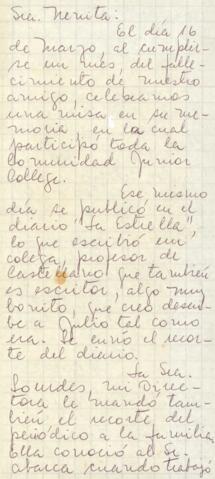 Sra. Nenita:
El día 16
de Marzo, al cumplir-
se un mes, del falle-
cimiento de nuestro
amigo, celebramos
una misa en su me-
moria en la cual
participó toda la
Comunidad Junior
College.
Ese mismo
día se publicó en el
diario "La Estrella"
lo que escribió mi
colega, profesor de
Castellano que también
es escritor, algo muy
bonito, que creo descri-
be a Julio tal como
era. Le envío el recor-
te del diario.
La Sra.
Lourdes, mi Direc-
tora le mandó tam-
bién el recorte del
periódico a la familia
Ella conoció al Sr.
Abarca cuando trabajó